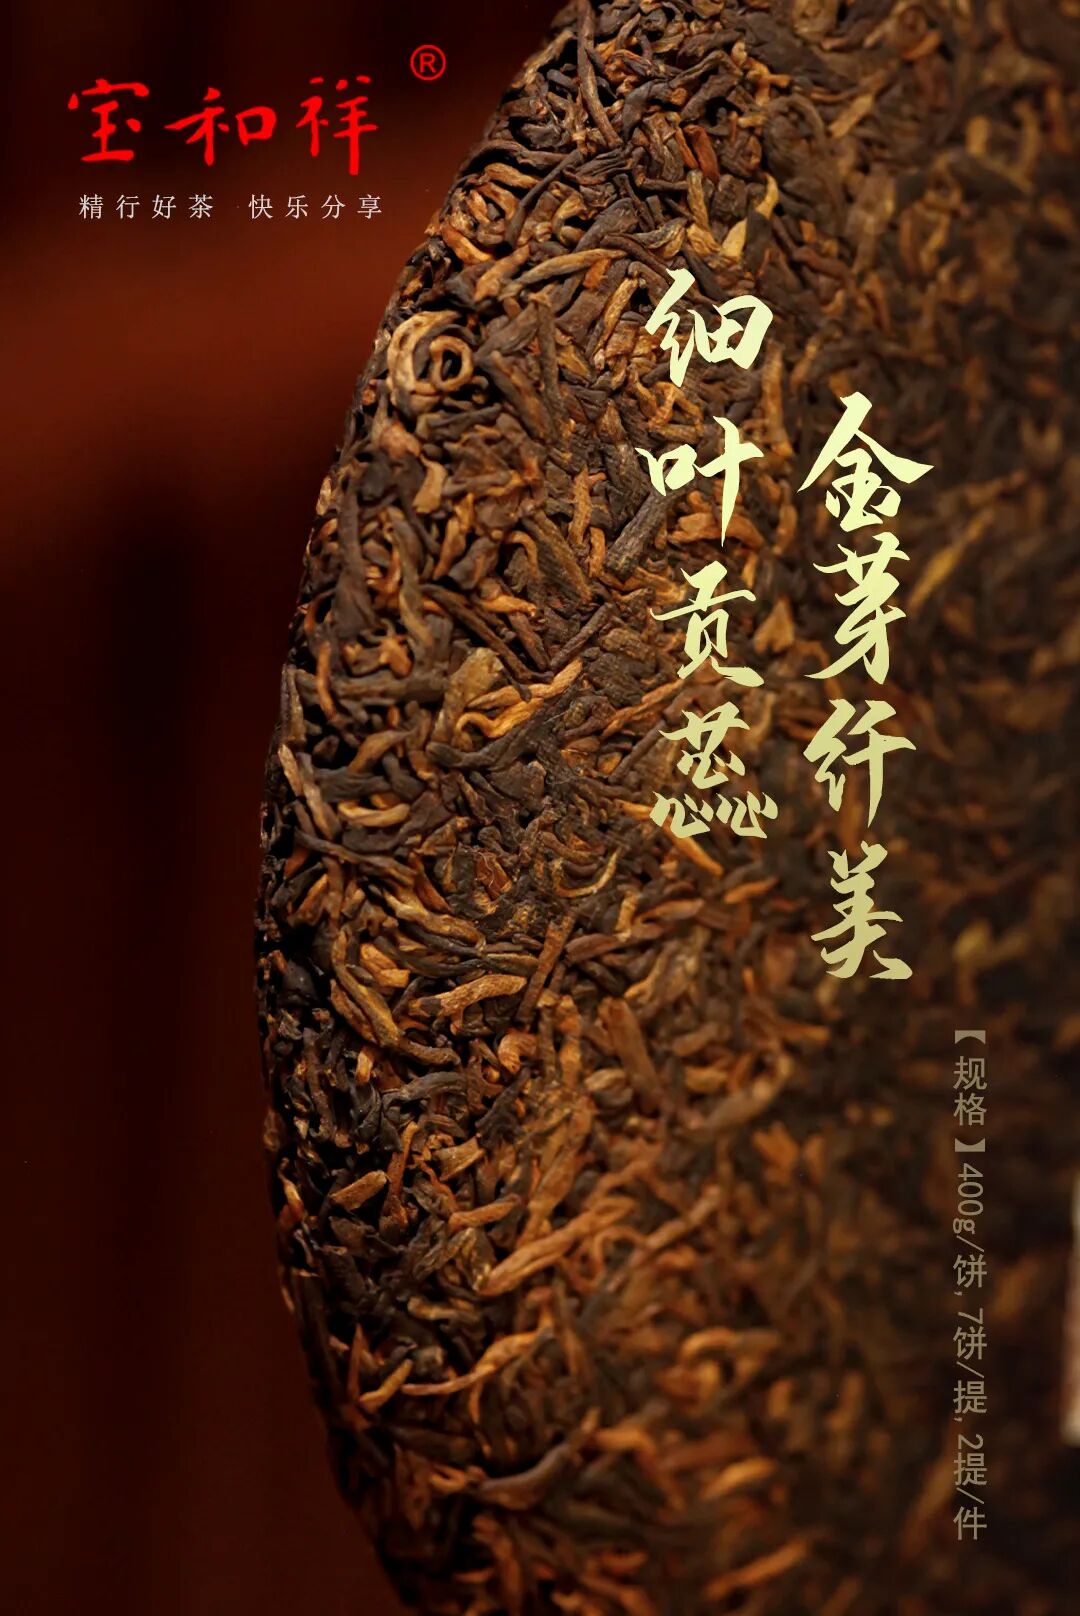 宝和祥®
精行好茶 快乐分享
细叶贡蕊
金芽纤美
【规格】400g/饼, 7饼/提, 2提/件